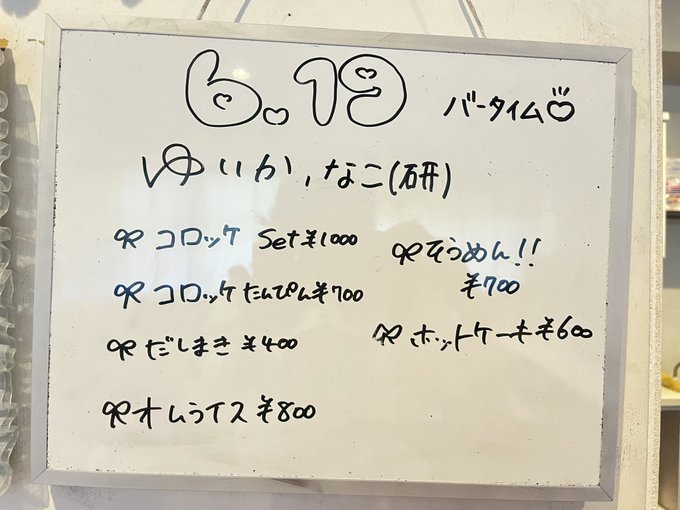 6.19
バータイム♡
ゆいか, なこ(研)
コロッケ Set ¥1000
コロッケ たんぴん ¥700
だしまき ¥400
オムライス ¥800
そうめん!!
¥700
ホットケーキ ¥600